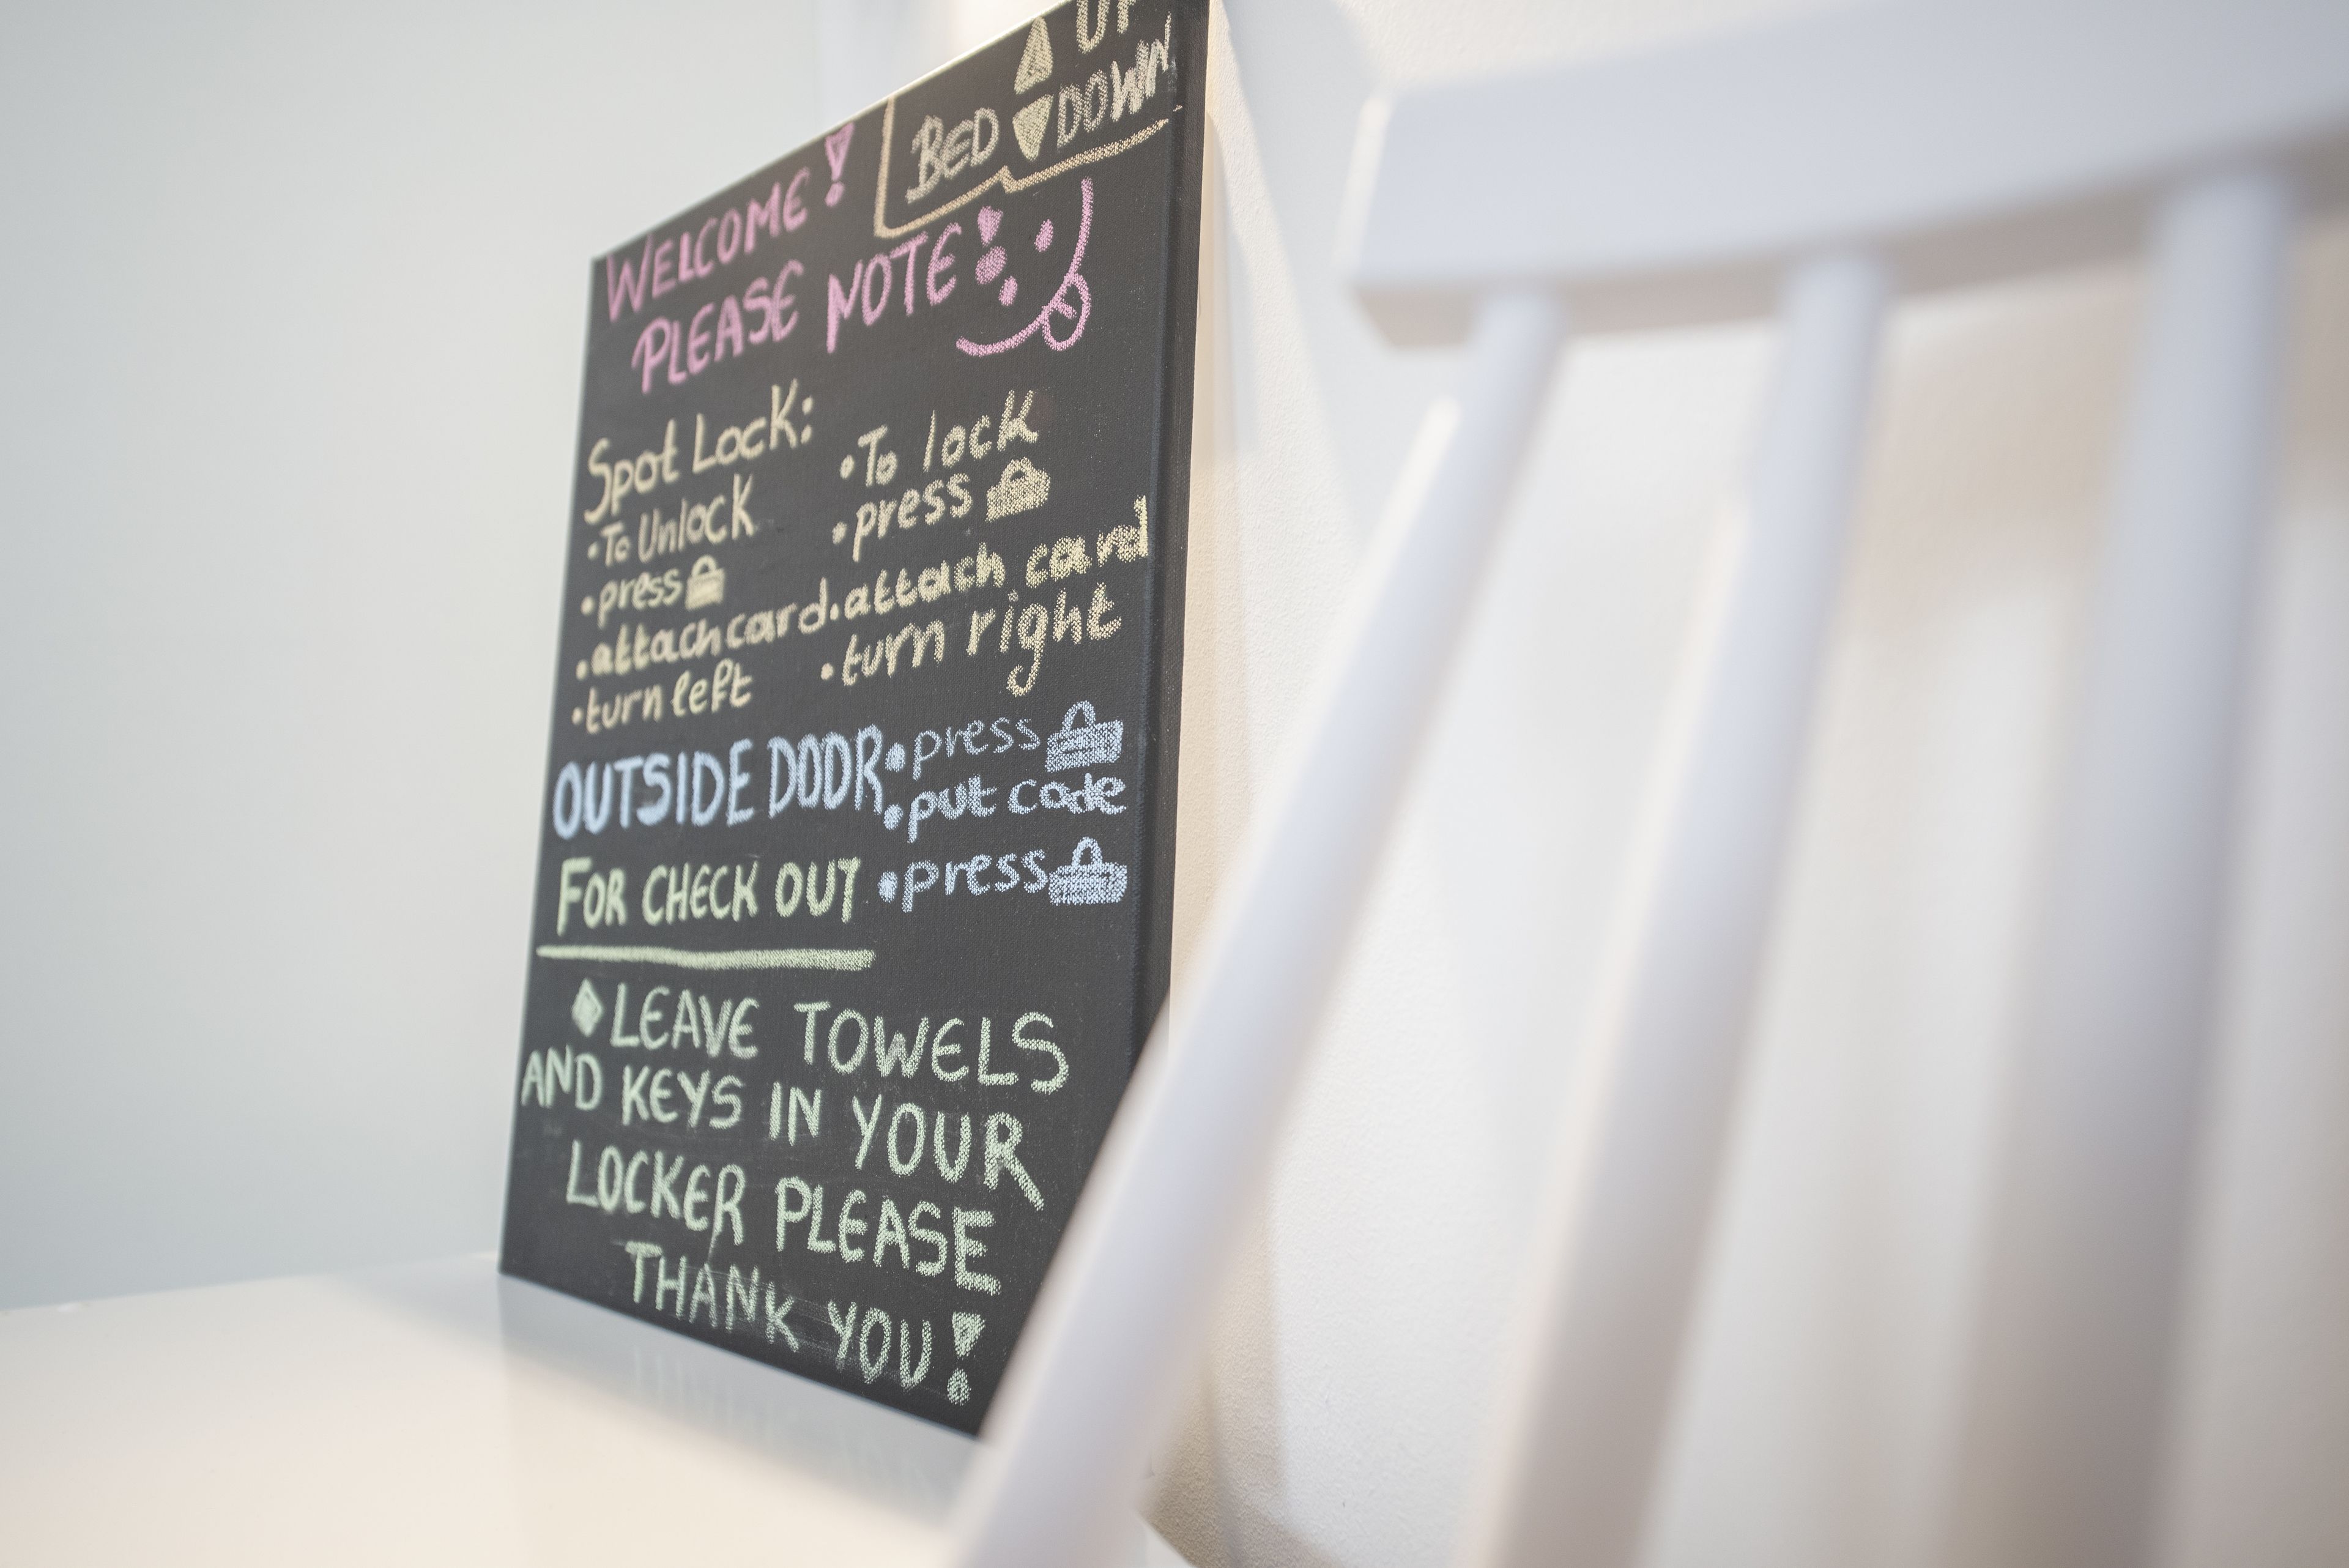 ▲ UP
BED ▼ DOWN
WELCOME!
PLEASE NOTE!
Spot Lock:
• To Unlock
• press
• attach card
• turn left
• To lock
• press
• attach card
• turn right
OUTSIDE DOOR
• press
• put code
• press
FOR CHECK OUT
◆ LEAVE TOWELS
AND KEYS IN YOUR
LOCKER PLEASE
THANK YOU!